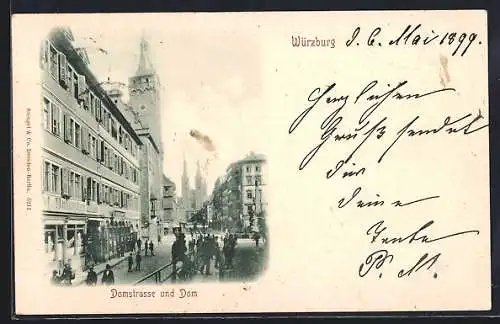 Würzburg d. 6. Mai 1899.
Herzlichen
Gruß sendet
Dir
Deine
Tante
P. M.
Stengel & Co. Dresden-Berlin.
Domstrasse und Dom